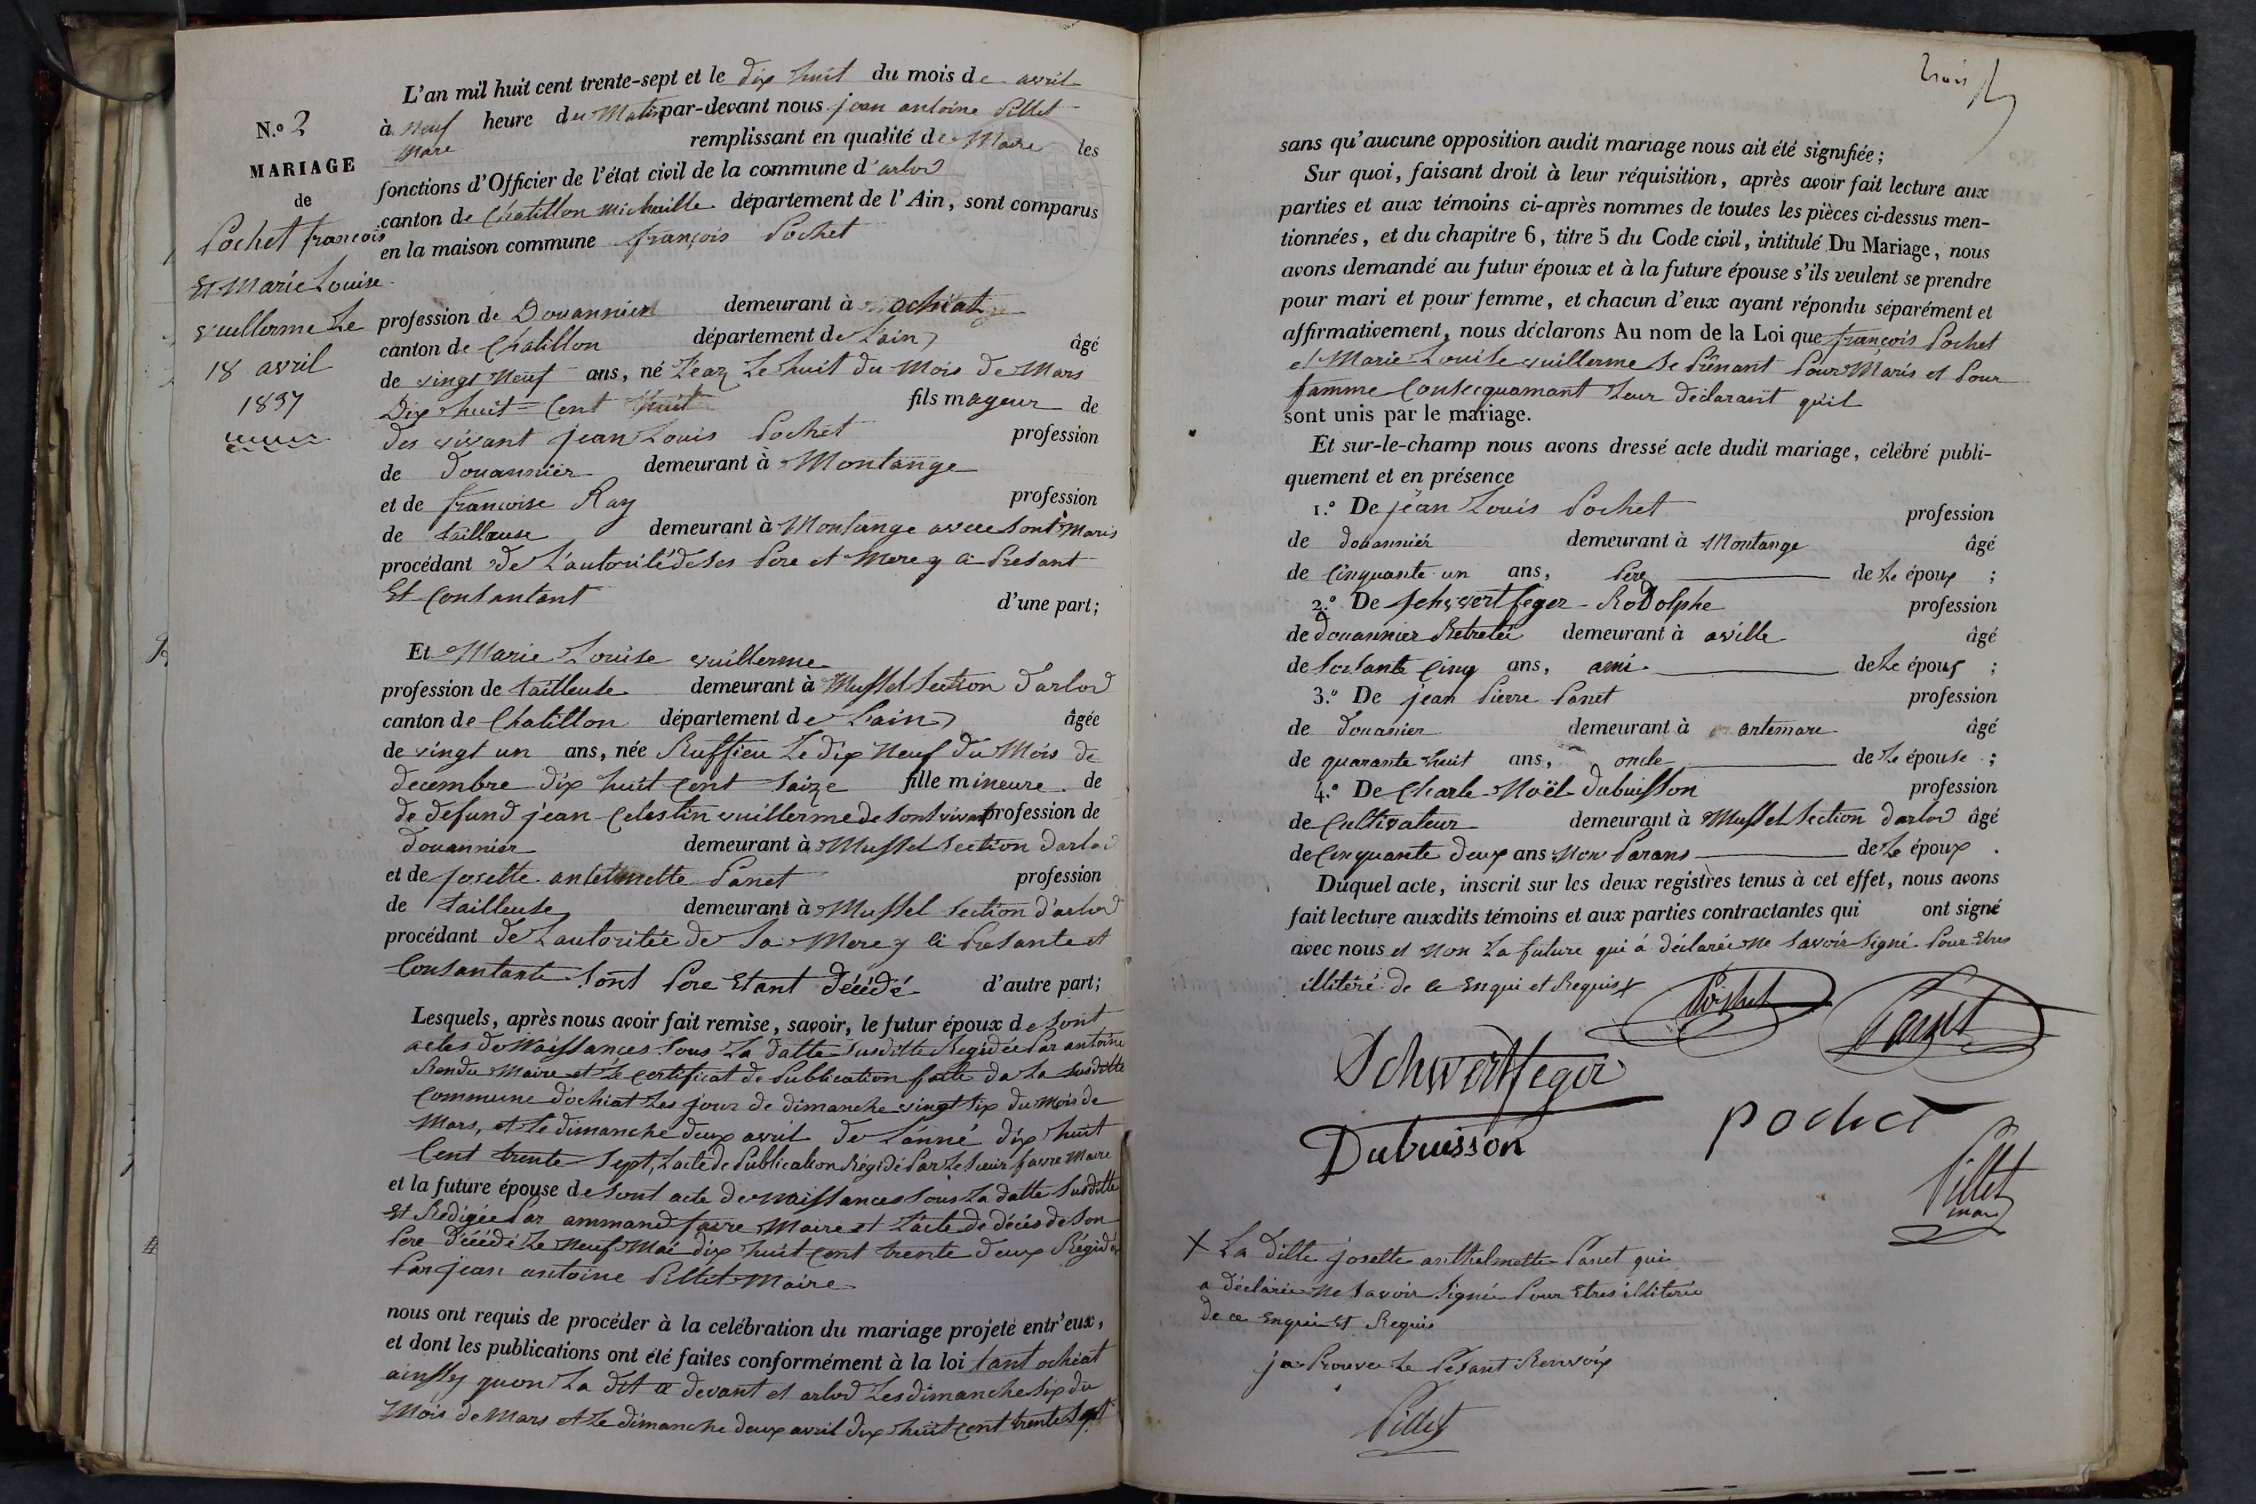 N.o 2
MARIAGE
de
Pochet françois
Et Marie Louise
vuillerme Le
18 avril
1837
L'an mil huit cent trente-sept et le dix huit du mois de avril
à neuf heure du Matin par-devant nous jean antoine Pillet
Mare remplissant en qualité de Maire les
fonctions d'Officier de l'état civil de la commune d'arlod
canton de Chatillon michaille département de l'Ain, sont comparus
en la maison commune françois Pochet
profession de Douannier demeurant à ochiat
canton de Chatillon département de Lain âgé
de vingt Neuf ans, né Lean Le huit du Mois de Mars
Dix huit Cent huit fils mayeur de
des vivant jean Louis Pochet profession
de douannier demeurant à Montange
et de francoise Ray profession
de tailleuse demeurant à Montange avec sont Maris
procédant de L'autorité de ses Pere et Mere y ci Presant
Et Consantant d'une part;
Et Marie Louise vuillerme
profession de tailleuse demeurant à Mussel Section d'arlod
canton de Chatillon département de Lain âgée
de vingt un ans, née Ruffieu Le dix Neuf du Mois de
decembre dix huit Cent Saize fille mineure de
de defund jean Celestin vuillerme de sont vivant profession de
douannier demeurant à Mussel Section darlod
et de josette antelmette Panet profession
de tailleuse demeurant à Mussel Section d'arlod
procédant de Lautoritée de Sa Mere y ci Presante et
Consantante Sont Pere Etant décédé d'autre part;
Lesquels, après nous avoir fait remise, savoir, le futur époux de sont
actes de Naissances Sous La datte Susditte Regidée Par antoine
Rendu Maire et Le Certificat de Publication faite da La susditte
Commune d'ochiat Les jour de dimanche vingt six du mois de
Mars, et Le dimanche deux avril de Lanné dix huit
Cent trente Sept, Lacte de Publication Régidé Par Le Sieur favre Maire
et la future épouse de sont acte de Naissances Sous La datte Susditte
Et Redigée Par ammand favre Maire et Lacte de décés de Son
Pere décédé Le Neuf Mai dix huit Cent trente deux Régidée
Par jean antoine Pillet Maire
nous ont requis de procéder à la celébration du mariage projeté entr'eux,
et dont les publications ont été faites conformément à la loi tant ochiat
ainssy quon La dit ce devant et arlod Les dimanche six du
Mois de Mars et Le dimanche deux avril dix huit Cent trente Sept
trois
sans qu'aucune opposition audit mariage nous ait été signifiée;
Sur quoi, faisant droit à leur réquisition, après avoir fait lecture aux
parties et aux témoins ci-après nommes de toutes les pièces ci-dessus men-
tionnées, et du chapitre 6, titre 5 du Code civil, intitulé Du Mariage, nous
avons demandé au futur époux et à la future épouse s'ils veulent se prendre
pour mari et pour femme, et chacun d'eux ayant répondu séparément et
affirmativement, nous déclarons Au nom de la Loi que françois Pochet
et Marie Louise vuillerme Se Prenant Pour Maris et Pour
famme Consecquamant Leur déclarant qu'il
sont unis par le mariage.
Et sur-le-champ nous avons dressé acte dudit mariage, célébré publi-
quement et en présence
1.o De jean Louis Pochet profession
de douannier demeurant à Montange âgé
de Cinquante un ans, Pere de Le époux ;
2.o De Schwertfeger Rodolphe profession
de douannier Retretée demeurant à aville âgé
de soisante Cinq ans, ami de Le époux ;
3.o De jean Pierre Panet profession
de douanier demeurant à artemare âgé
de quarante huit ans, oncle de Le épouse ;
4.o De Charle Noël dubuisson profession
de Cultivateur demeurant à Mussel Section darlod âgé
de Cinquante deux ans Non Parans de Le époux .
Duquel acte, inscrit sur les deux registres tenus à cet effet, nous avons
fait lecture auxdits témoins et aux parties contractantes qui ont signé
avec nous et Non La future qui á déclarée ne savoir signé Pour Etres
illitéré de ce Enqui et Requis X
Pochet
Panet
Schwertfeger
Dubuisson
pochet
Pillet
mare
X La ditte josette anthelmette Panet qui
a déclarée ne savoir Signée Pour Etres illiterée
de ce Enqui Et Requis
ja Prouve Le Présant Renvoix
Pillet